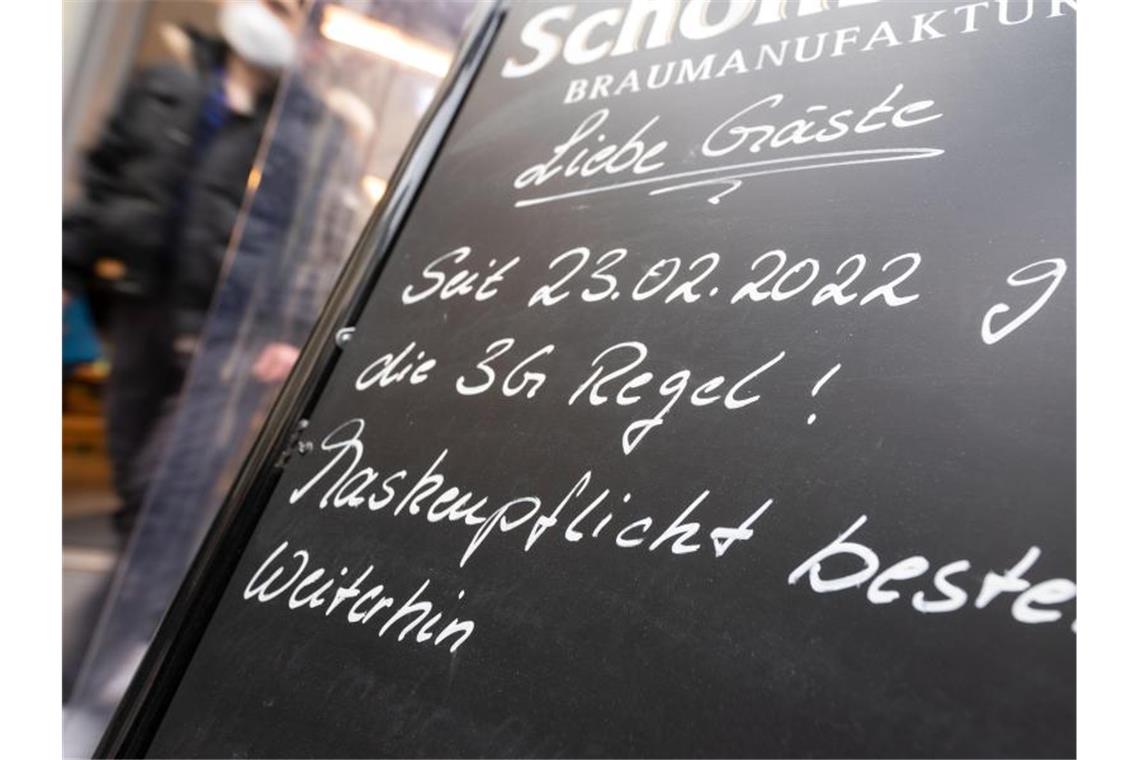 BRAUMANUFAKTUR
Liebe Gäste
Seit 23.02.2022 g
die 3G Regel !
Maskenpflicht beste
Weiterhin